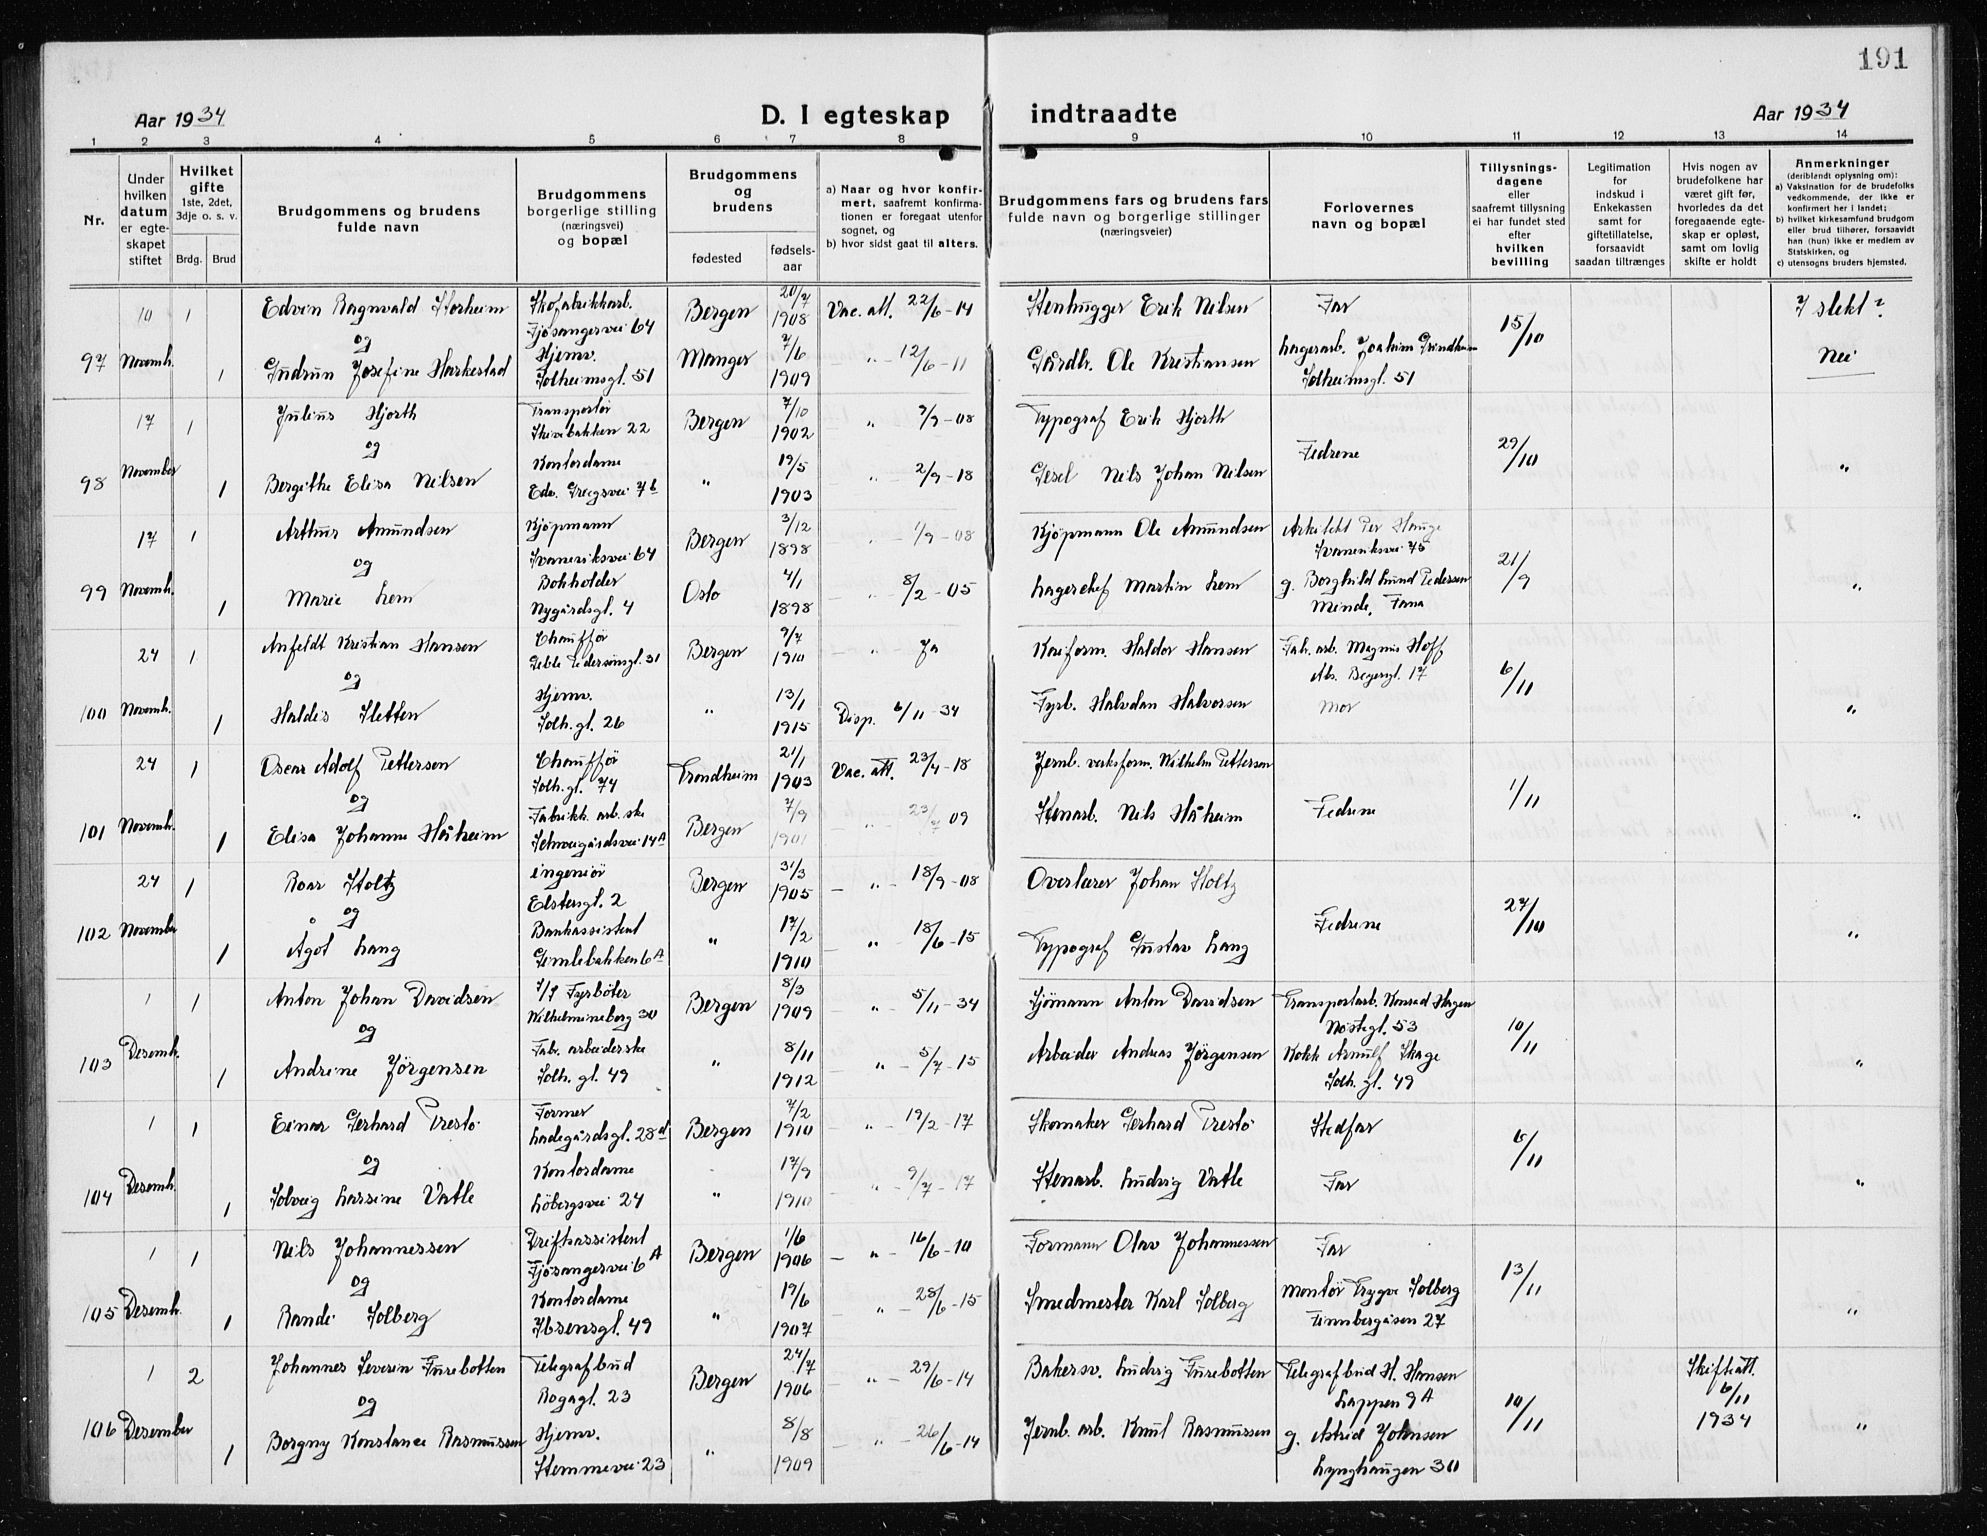 191
Aar 1934
D. I egteskap indtraadte
Aar 1934
1 2 3 4 5 6 7 8 9 10 11 12 13 14
Nr.
Under hvilken datum er egteskapet stiftet
Hvilket gifte 1ste, 2det, 3dje o. s. v.
Brdg. Brud
Brudgommens og brudens fulde navn
Brudgommens borgerlige stilling (næringsvei) og bopæl
Brudgommens og brudens
fødested
fødselsaar
a) Naar og hvor konfirmert, saafremt konfirmationen er foregaat utenfor sognet, og
b) hvor sidst gaat til alters.
Brudgommens fars og brudens fars fulde navn og borgerlige stillinger (næringsveier)
Forlovernes navn og bopæl
Tillysningsdagene eller saafremt tillysning ei har fundet sted efter hvilken bevilling
Legitimation for indskud i Enkekassen samt for giftetillatelse, forsaavidt saadan tiltrænges
Hvis nogen av brudefolkene har været gift før, hvorledes da det foregaaende egteskap er opløst, samt om lovlig skifte er holdt
Anmerkninger (deriblandt oplysning om):
a) Vaksination for de brudefolks vedkommende, der ikke er konfirmert her i landet;
b) hvilket kirkesamfund brudgom eller brud tilhører, forsaavidt han (hun) ikke er medlem av Statskirken, og
c) utensogns bruders hjemsted.
97 10 Novemb. 1 Edvin Ragnvald Storheim Skofabrikkarb. Fjøsangervei 64 Bergen 20/7 1908 Vac. att. 22/6-14 Stenhugger Erik Nilsen Far 15/10 I slekt?
og
1 Gudrun Josefine Harkestad Hjemv. Solheimsgt. 51 Manger 7/6 1909 " 12/6-11 Gårdbr. Ole Kristiansen Lagerarb. Joakim Grindheim Solheimsgt. 51 Nei
98 17 November 1 Julius Hjorth Transportør Skivebakken 22 Bergen 7/10 1902 " 7/9-08 Typograf Erik Hjorth Fedrene 29/10 "
og
1 Bergithe Elisa Nilsen Kontordame Edv. Griegsvei 7b " 19/5 1903 " 2/9-18 Gesel Nils Johan Nilsen
99 17 Novemb. 1 Arthur Amundsen Kjøpmann Ivareriksvei 64 Bergen 3/12 1898 " 1/9-08 Kjøpmann Ole Amundsen Arkitekt Per Hauge 75 21/9 "
og
1 Marie Lem Bokholder Nygårdsgt. 4 Oslo 4/1 1898 " 8/2-05 Lagerchef Martin Lem g. Borghild Lund Pedersen Minde, Fana
100 24 Novemb. 1 Anfeldt Kristian Hansen Chauffør Peble Pedersensgt. 31 Bergen 9/7 1910 " Ja Haldor Hansen Fab. arb. Magnus Hoff Abs. Beyersgt. 17 6/11 "
og
1 Haldis Sletten Hjemv. Solh. gt. 26 " 13/1 1915 Disp. 6/11-34 Fyrb. Halvdan Halvorsen Mor
101 24 Novemb. 1 Oscar Adolf Pettersen Chauffør Solh. gt. 74 Trondheim 21/1 1903 Vac. att. 23/4-18 Jernb. verksform. Wilhelm Pettersen Fedrene 1/11 "
og
1 Elisa Johanne Håheim Fabrikk. arb. ske Schweigårdsvei 14A Bergen 7/9 1901 " 23/7 09 Stenarb. Nils Håheim
102 24 November 1 Roar Stoltz ingeniør Elstersgt. 2 Bergen 31/3 1905 " 18/9-08 Overlærer Johan Stoltz Fedrene 27/10 "
og
1 Ågot Lang Bankassistent Gimlebakken 6A " 17/2 1910 " 18/6-15 Typograf Gustav Lang
103 1 Desemb. 1 Anton Johan Davidsen Fyrbøter Wilhelmineborg 30 Bergen 8/3 1909 " 5/11-34 Sjømann Anton Davidsen Transportarb. Konrad Hagen Nøstegt. 53 10/11 "
og
1 Andrine Jörgensen Fab. arbeiderske Solh. gt. 49 " 8/11 1912 " 5/7-15 Arbeider Andreas Jörgensen Kokk Arnulf Skage Solh. gt. 49
104 1 Desemb. 1 Einar Gerhard Prestö Former Ladegårdsgt. 28d Bergen 7/2 1910 " 19/2-17 Skomaker Gerhard Prestö Stedfar 6/11 "
og
1 Solveig Larsine Vatle Kontordame Löbergsvei 24 " 17/9 1910 " 9/7-17 Stenarb. Ludvig Vatle Far
105 1 Desemb. 1 Nils Johannessen Driftsassistent Fjøsangervei 6A Bergen 1/6 1906 " 16/6-10 Formann Olav Johannessen Far 13/11 "
og
1 Randi Solberg Kontordame Ibsensgt. 49 " 19/6 1907 " 28/6-15 Smedmester Karl Solberg Montør Trygve Solberg Finnbergåsen 27
106 1 Desember 2 Johannes Severin Furebotten Telegrafbud Rogagt. 23 Bergen 24/7 1906 " 29/6-14 Bakersv. Ludvig Furebotten Telegrafbud H. Hansen Lappen 9A 10/11 Skifteatt. 6/11 1934 "
og
1 Borgny Konstance Rasmussen Hjemv. Stemmevei 23 " 8/8 1909 " 26/6-14 Jernb. arb. Knut Rasmussen g. Astrid Johnsen Lynghaugen 30